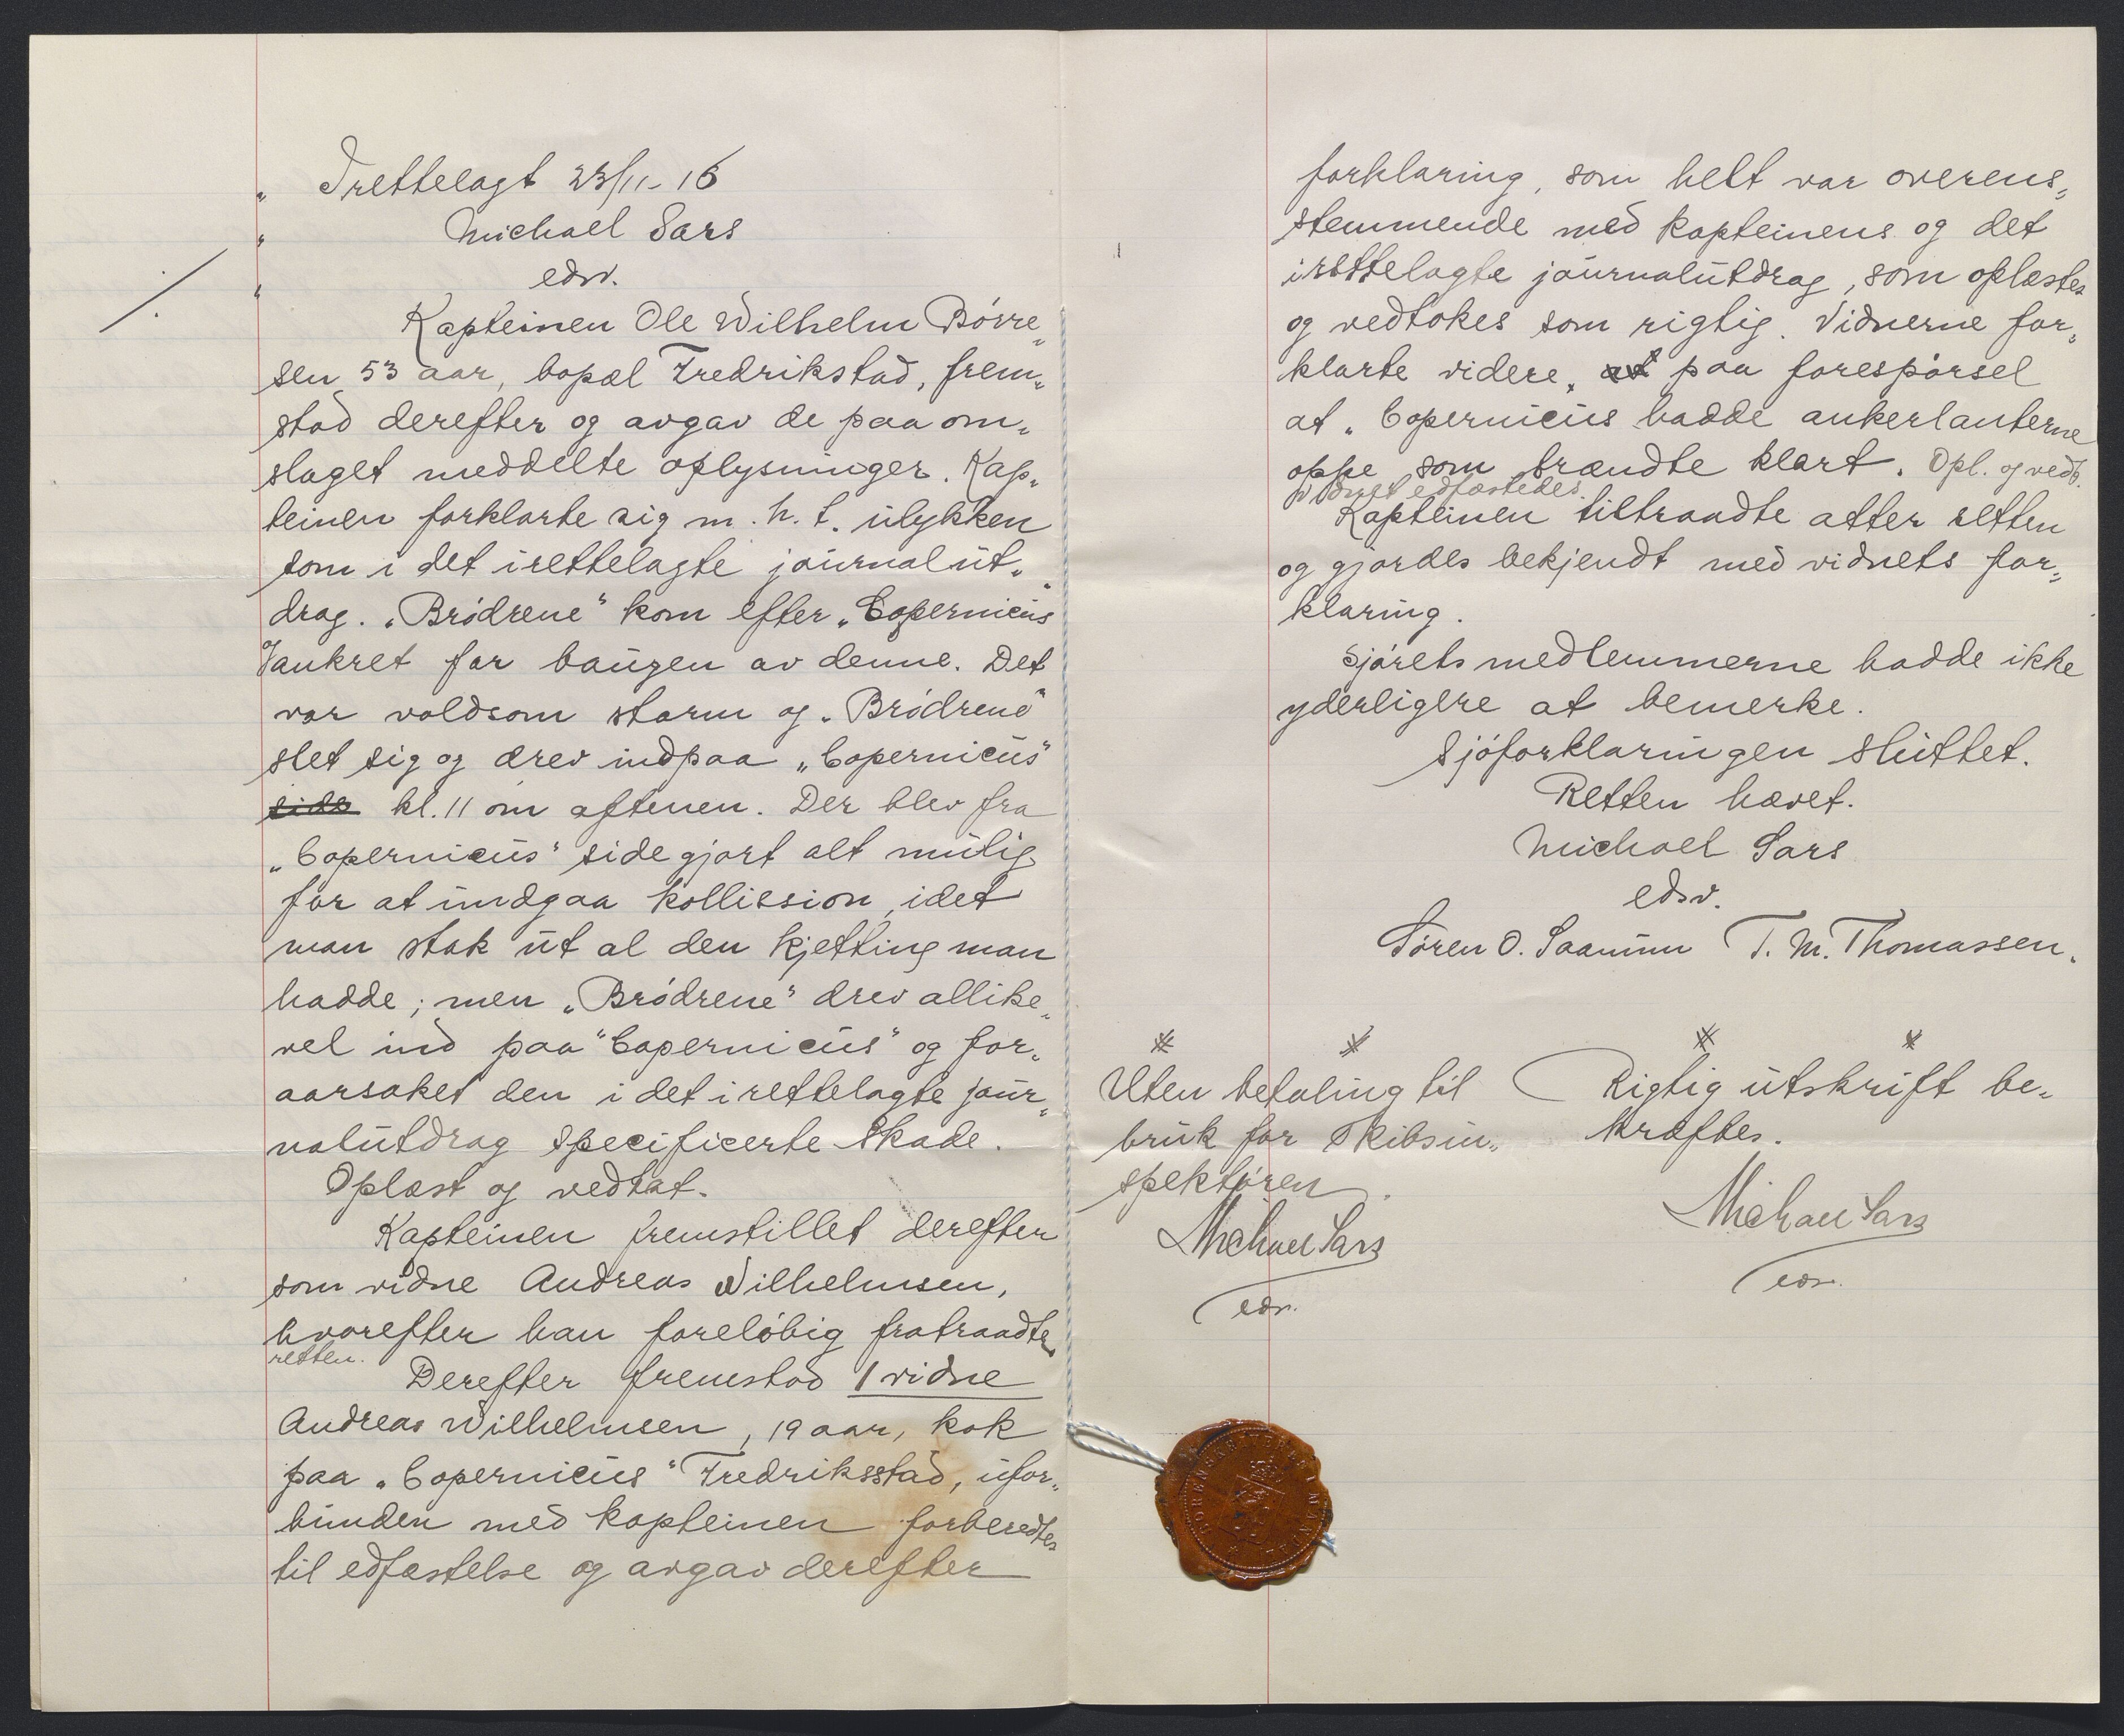 „ Irettelagt 23/11-16
„ Michael Sars
„ edsv.
Kapteinen Ole Wilhelm Børre„
sen 53 aar, bopæl Fredrikstad, frem„
stod derefter og avgav de paa om„
slaget meddelte oplysninger. Kap„
teinen forklarte sig m. h. t. ulykken
som i det irettelagte journalut„
drag. „Brødrene“ kom efter „Copernicus“
og ankret for baugen av denne. Det
var voldsom storm og „Brødrene“
slet sig og drev indpaa „Copernicus“
side kl. 11 om aftenen. Der blev fra
„Copernicus“ side gjort alt mulig
for at undgaa kollission, idet
man stak ut al den kjetting man
hadde; men „Brødrene“ drev allike„
vel ind paa “Copernicus“ og for„
aarsaket den i det irettelagte jour„
nalutdrag specificerte skade.
Oplæst og vedtat.
Kapteinen fremstillet derefter
som vidne Andreas Wilhelmsen,
hvorefter han foreløbig fratraadte
retten.
Derefter fremstod 1 vidne
Andreas Wilhelmsen, 19 aar, kok
paa „Copernicus“ Fredriksstad, ufor„
bunden med kapteinen forberedtes
til edfæstelse og avgav derefter
forklaring, som helt var overens„
stemmende med kapteinens og det
irettelagte journalutdrag, som oplæstes
og vedtokes som rigtig. Vidnerne for„
klarte videre, at paa forespørsel
at „Copernicus hadde ankerlanterne
oppe som brændte klart. Opl. og vedt.
Vidnet edfæstedes.
Kapteinen tiltraadte atter retten
og gjordes bekjendt med vidnets for„
klaring.
Sjøretsmedlemmerne hadde ikke
yderligere at bemerke.
Sjøforklaringen sluttet.
Retten hævet.
Michael Sars
edsv.
Søren O. Saanum T. M. Thomassen.
Uten betaling til
bruk for Skibsin„
spektøren.
Michael Sars
edsv.
Rigtig utskrift be„
kræftes.
Michael Sars
edsv.